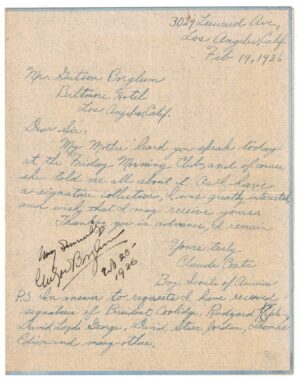 3029 Leeward Ave,
Los Angeles, Calif.
Feb 19, 1926
Mr. Gutson Borglum
Biltmore Hotel
Los Angeles, Calif.
Dear Sir:
My Mother heard you speak today
at the Friday Morning Club, and of course
she told me all about it. As I have
a signature collection, I was greatly interested
and wish that I may receive yours.
Thanking you in advance, I remain
Yours truly,
Claude
Boy Scouts of America
Gutzon Borglum
Feb 23-
1926
PS In answer to requests I have received
signature of President Coolidge, Rudyard Kipling,
David Loyd George, David Star Jordan, Thomas
Edison and many other.